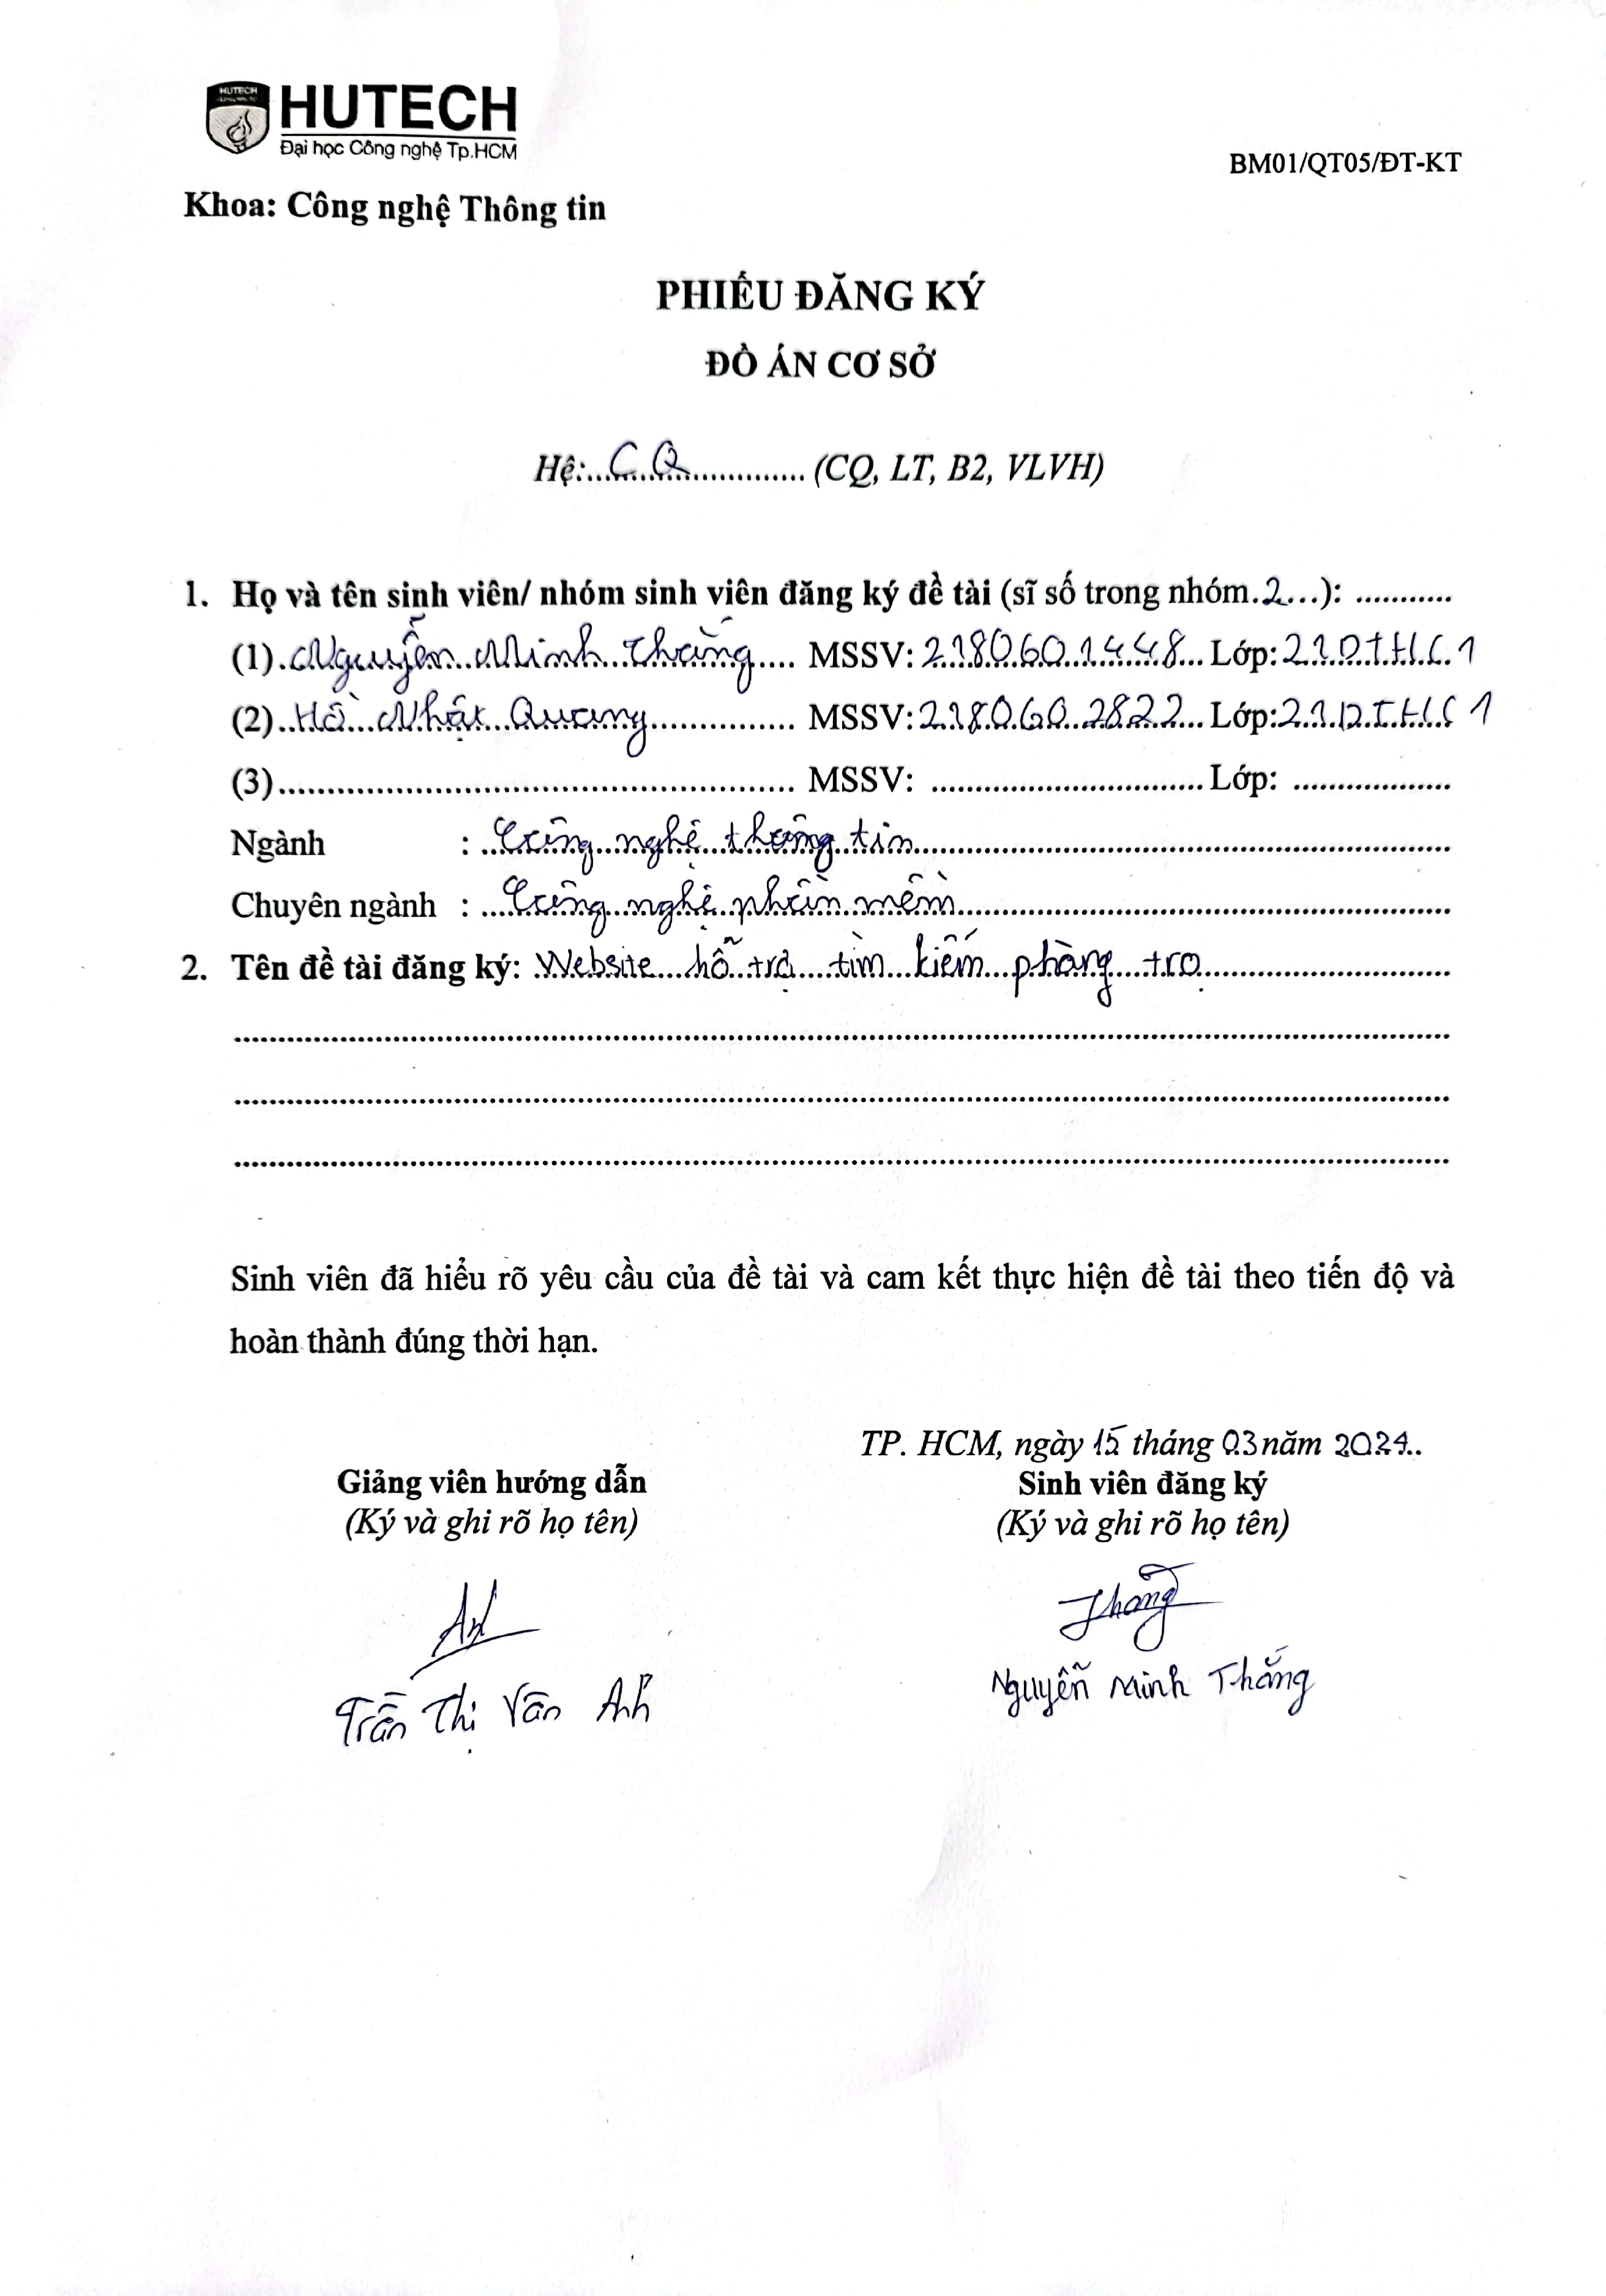 HUTECH
HUTECH
Đại học Công nghệ Tp.HCM
BM01/QT05/ĐT-KT
Khoa: Công nghệ Thông tin
PHIẾU ĐĂNG KÝ
ĐỒ ÁN CƠ SỞ
Hệ:....CQ.............. (CQ, LT, B2, VLVH)
1. Họ và tên sinh viên/ nhóm sinh viên đăng ký đề tài (sĩ số trong nhóm.2...): ...........
(1).Nguyễn Minh Thắng.... MSSV: 2180601448... Lớp: 21DTHC1
(2)..Hồ Nhật Quang............... MSSV: 2180602822... Lớp: 21DTHC1
(3)..................................................... MSSV: ............................. Lớp: .................
Ngành : ..Công nghệ thông tin.......................................................
Chuyên ngành : ...Công nghệ phần mềm..................................................
2. Tên đề tài đăng ký: Website hỗ trợ tìm kiếm phòng trọ.........................
................................................................................................................
................................................................................................................
................................................................................................................
Sinh viên đã hiểu rõ yêu cầu của đề tài và cam kết thực hiện đề tài theo tiến độ và
hoàn thành đúng thời hạn.
TP. HCM, ngày 15 tháng 03 năm 2024..
Giảng viên hướng dẫn Sinh viên đăng ký
(Ký và ghi rõ họ tên) (Ký và ghi rõ họ tên)
Thắng
Trần Thị Vân Anh Nguyễn Minh Thắng